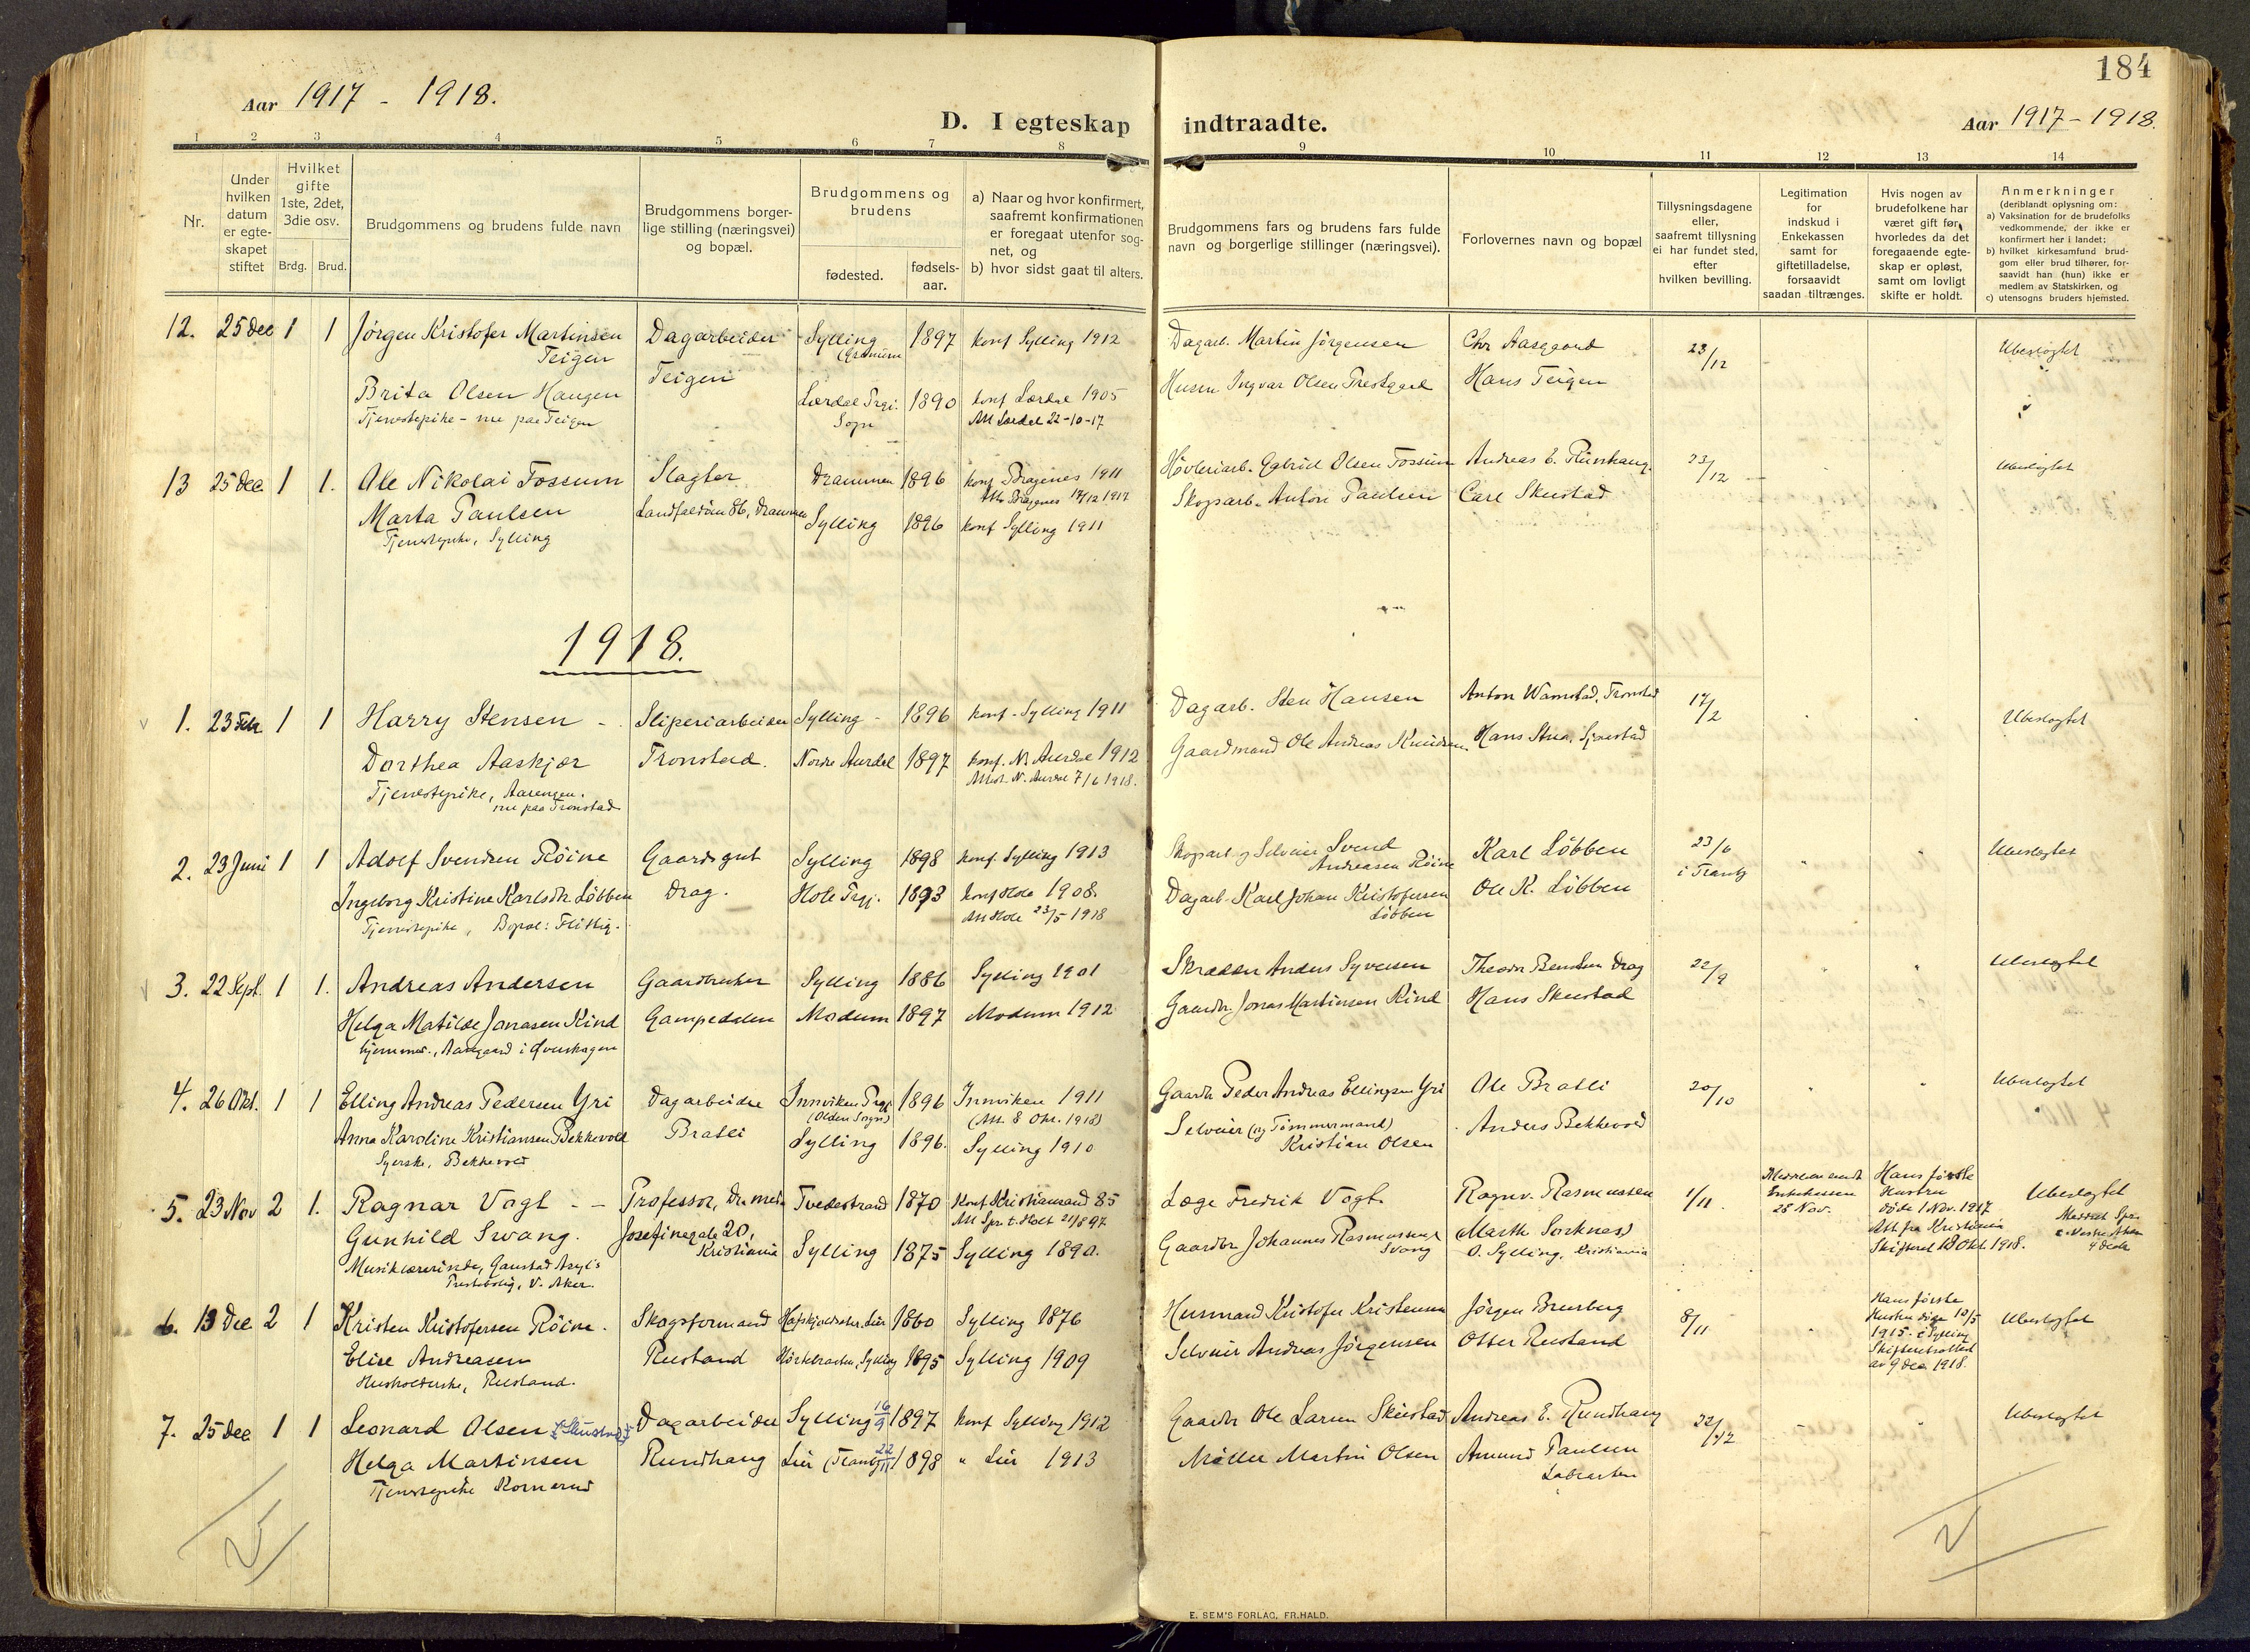 184
Aar 1917 - 1918.
D. I egteskap indtraadte.
Aar 1917 - 1918.
1 2 3 4 5 6 7 8 9 10 11 12 13 14
Nr.
Under hvilken datum er egte- skapet stiftet
Hvilket gifte 1ste, 2det, 3die osv.
Brdg. Brud.
Brudgommens og brudens fulde navn
Brudgommens borger- lige stilling (næringsvei) og bopæl.
Brudgommens og brudens
fødested.
fødsels- aar.
a) Naar og hvor konfirmert, saafremt konfirmationen er foregaat utenfor sog- net, og
b) hvor sidst gaat til alters.
Brudgommens fars og brudens fars fulde navn og borgerlige stillinger (næringsvei).
Forlovernes navn og bopæl
Tillysningsdagene eller, saafremt tillysning ei har fundet sted, efter hvilken bevilling.
Legitimation for indskud i Enkekassen samt for giftetilladelse, forsaavidt saadan tiltrænges.
Hvis nogen av brudefolkene har været gift før, hvorledes da det foregaaende egte- skap er opløst, samt om lovligt skifte er holdt.
Anmerkninger
(deriblandt oplysning om:
a) Vaksination for de brudefolks vedkommende, der ikke er konfirmert her i landet;
b) hvilket kirkesamfund brud- gom eller brud tilhører, for- saavidt han (hun) ikke er medlem av Statskirken, og
c) utensogns bruders hjemsted.
12. 25 Dec 1 1 Jörgen Kristofer Martinsen Dagarbeider Sylling 1897 konf Sylling 1912 Dagarb. Martin Jörgensen Chr Aasgaard 23/12 Ubeslegtet
Teigen Teigen
Brita Olsen Haugen Lærdal Prgj. 1890 konf Lærdal 1905 Ingvar Olsen Hans Teigen
Tjenestepike - nu paa Teigen Sogn Att Lærdal 22-10-17
13 25 Dec. 1 1. Ole Nikolai Fossum Slagter Drammen 1896 konf Bragenes 1911 Høvleriarb. Gabriel Olsen Fossum Andreas E. 23/12 Ubeslegtet
Marta Paulsen Drammen Sylling 1896 konf Sylling 1911 Skogsarb. Anton Paulsen Carl Skustad
Tjenestepike, Sylling
1918.
1. 23 Febr 1 1 Harry Stensen - Sliperiarbeider Sylling - 1896 konf. Sylling 1911 Dagarb. Sten Hansen Anton Wamstad, Tronstad 17/2 Ubeslegtet
Dorthea Aaskjær Tronstad. Nordre Aurdal 1897 konf. N. Aurdal 1912 Gaardmand Ole Andreas Knudsen Hans
Tjenestepike, nu paa Tronstad Att N. Aurdal 7/6 1918.
2. 23 Juni 1 1 Adolf Svendsen Röine Gaardsgut Sylling 1898 konf. Sylling 1913 Skogsarb og Selveier Svend Andreasen Röine Karl Löbben 23/6 i Tranby Ubeslegtet
Ingeborg Kristine Karlsdtr. Löbben Drag. Hole Prgj. 1893 konf Hole 1908. Dagarb. Karl Johan Kristofersen Löbben Ole K. Löbben
Tjenestepike, Bopæl: Att Hole 23/5 1918
3. 22 Sept. 1 1. Andreas Andersen Gaardbruker Sylling 1886 Sylling 1901 Skrædder Anders Syversen Theodor Drag 22/9 Ubeslegtet
Helga Matilde Jonasen Kind Gampedalen Modum 1897 Modum 1912 Gaardbr. Jonas Martinsen Kind Hans Skustad
hjemmev.,
4. 26 Okt. 1 1 Elling Andreas Pedersen Yri Dagarbeider Innviken Prgj 1896 Innviken 1911 Gaardbr Peder Andreas Ellingsen Yri Ole Bratli 20/10 Ubeslegtet
Bratli (Olden Sogn) (Att. 8 Okt. 1918)
Anna Karoline Kristiansen Bekkevold Sylling 1896. Sylling 1910 Selveier (og Tömmermand) Kristian Olsen Anders Bekkevold
Syerske, Bekkevold
5. 23 Nov 2 1. Ragnar Vogt - - Professor, Dr. med. Tvedestrand 1870 Konf Kristiansand 85 Læge Fredrik Vogt. Ragnv. Rasmussen 1/11. Enkekassen 28 Nov. Hans første Hustru døde 1 Nov. 1917 Ubeslegtet
Gunhild Svang. Josefinegate 20, Kristiania Sylling 1875 Sylling 1890. Gaardbr Johannes Rasmussen Svang Marth O. Sylling, Kristiania Att fra Kristiania Skifteret 18 Okt. 1918.
Musiklærerinde, Gaustad Asyl's Prestebolig, V. Aker.
6. 13 Dec 2 1 Kristen Kristofersen Röine. Skogsformand 1860 Sylling 1876 Husmand Kristofer Kristensen Jörgen Brusberg 8/11 Hans første Hustru døde 10/5 1915 i Sylling Ubeslegtet
Elise Andreasen Rustand Sylling 1895 Sylling 1909 Selveier Andreas Jörgensen Otter Rustand av 9 Dec 1918.
Husholderske, Rustand.
7. 25 Dec 1 1 Leonard Olsen (Skustad) Dagarbeider Sylling 16/9 1897 konf Sylling 1912 Gaardbr Ole Larsen Skustad Andreas E. Rundhaug 22/12 Ubeslegtet
Helga Martinsen Rundhaug Lier (Tranby) 22/11 1898 " Lier 1913 Møller Martin Olsen Amund Paulsen
Tjenestepike Kornerud
E. SEM'S FORLAG, FR.HALD.